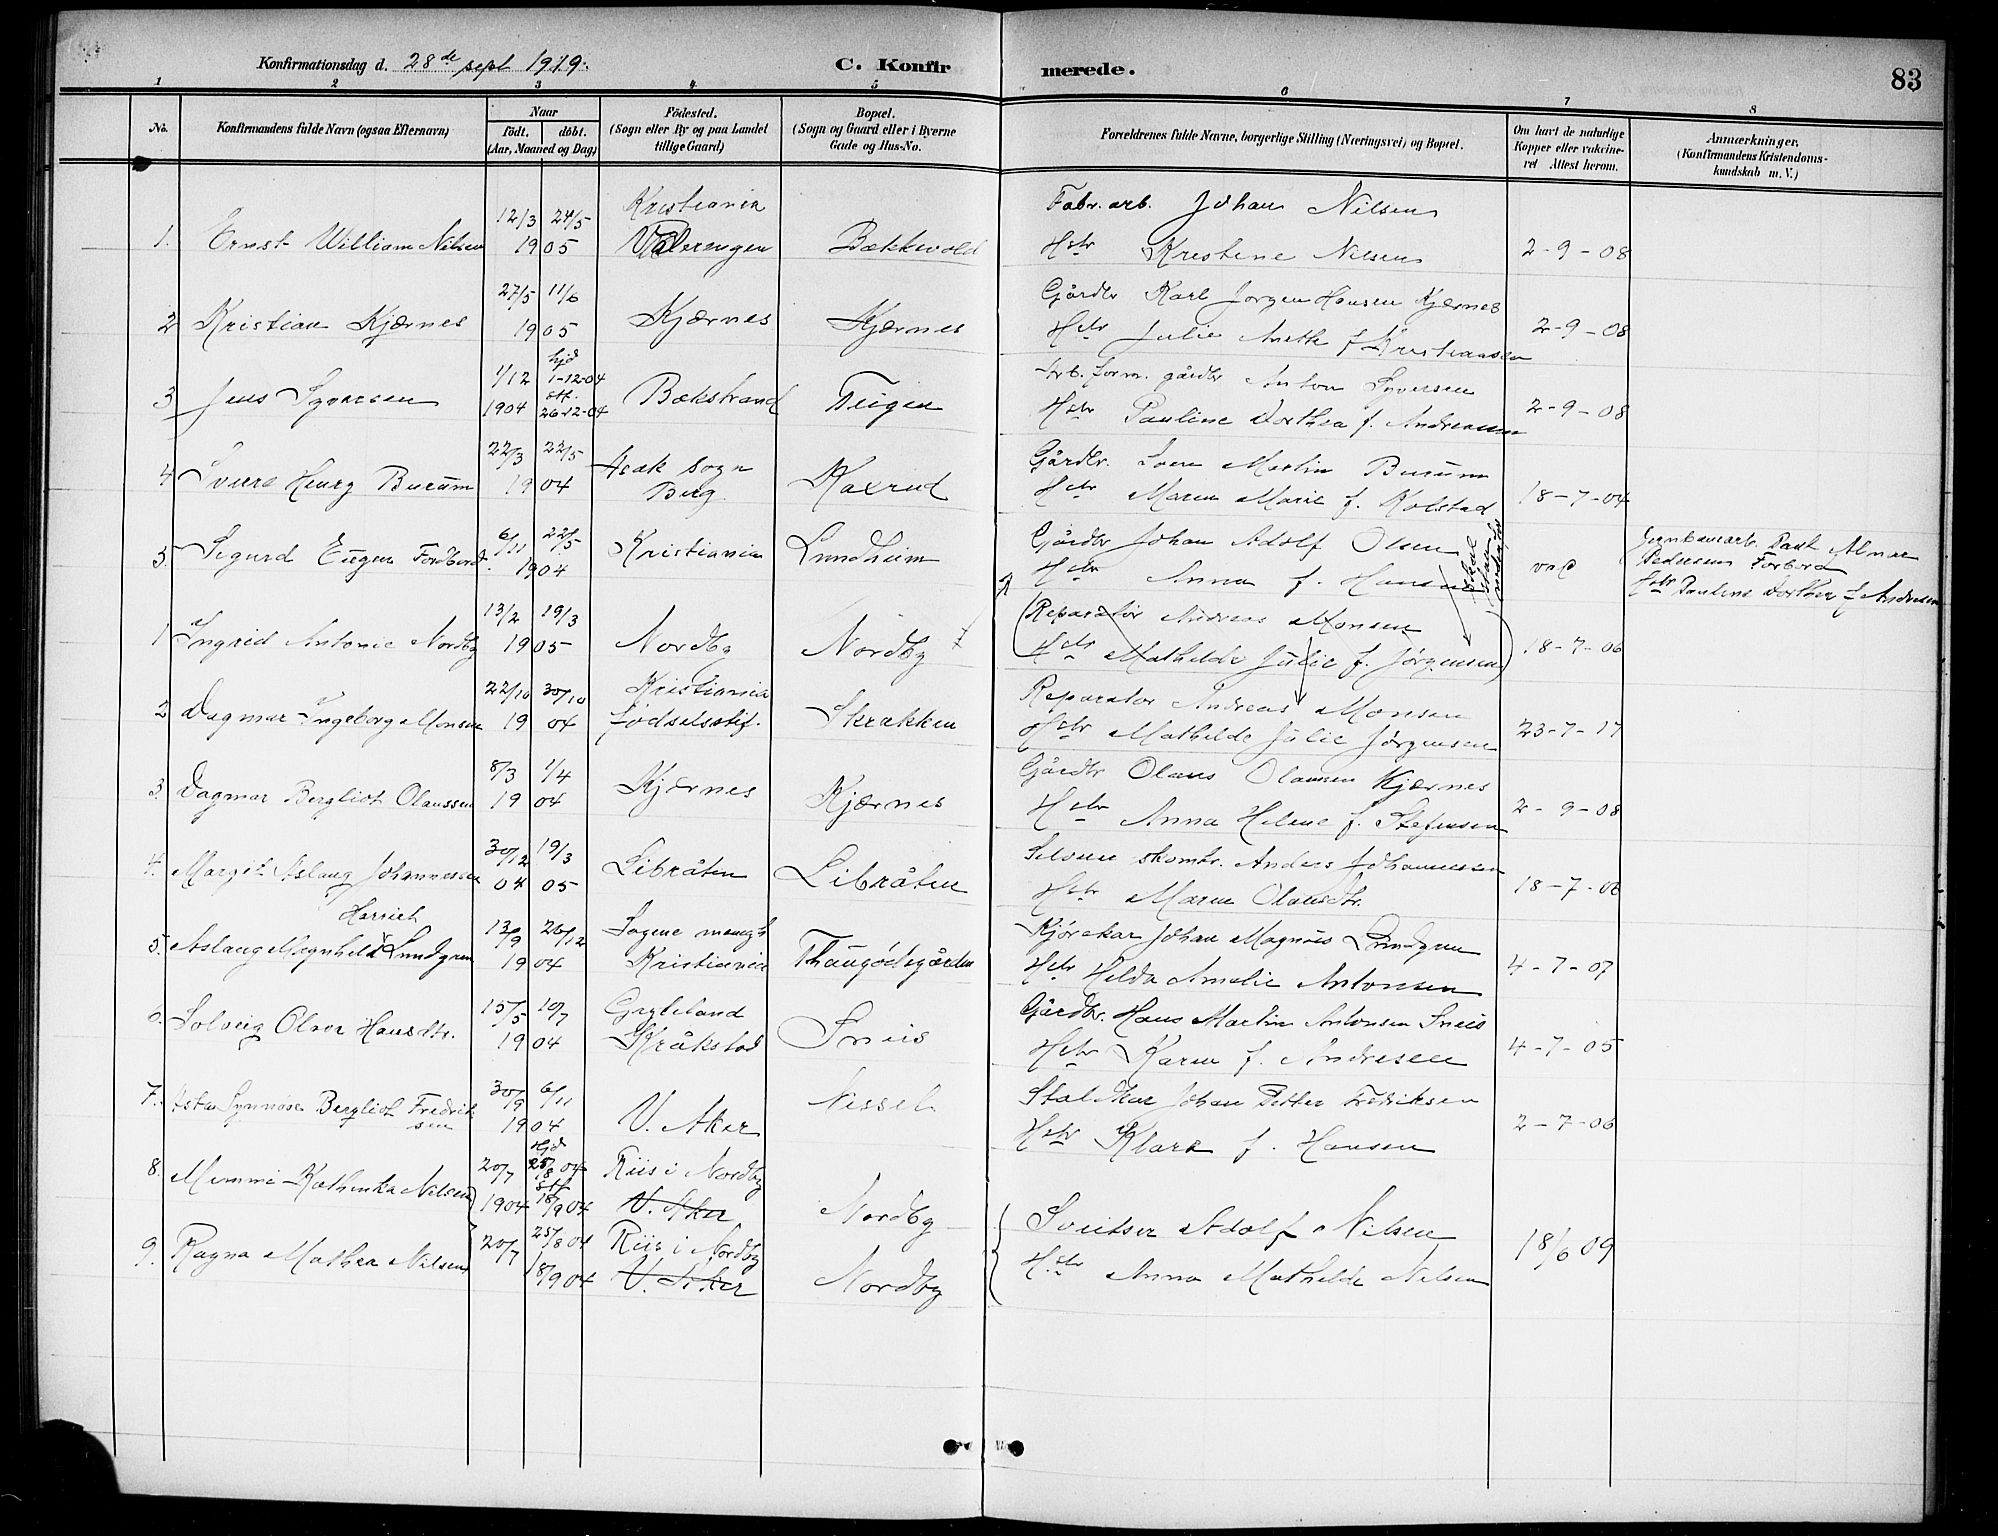 Konfirmationsdag d. 28de sept 1919.
C. Konfirmerede.
83
1 2 3 4 5 6 7 8
No.
Konfirmandens fulde Navn (ogsaa Efternavn)
Naar
født. døbt.
(Aar, Maaned og Dag)
Fødested.
(Sogn eller By og paa Landet
tillige Gaard)
Bopæl.
(Sogn og Gaard eller i Byerne
Gade og Hus-No.
Forældrenes fulde Navne, borgerlige Stilling (Næringsvei) og Bopæl.
Om havt de naturlige
Kopper eller vakcine-
ret Attest herom.
Anmærkninger.
(Konfirmandens Kristendoms-
kundskab m. V.)
12/3 24/5 Kristiania Fabr. arb. Johan Nilsen
1. Ernst William Nilsen 1905 Vålerengen Bækkevold Hstr Kristine Nilsen 2-9-08
27/5 11/6 Gårdbr Karl Jørgen Hansen Kjærnes
2 Kristian Kjærnes 1905 Kjærnes Kjærnes Hstr Julie Anette f Kristiansen 2-9-08
1/12 hjd 1-12-04 Arb. form. gårdbr Anton Syversen
3 Jens Syversen 1904 stf. 26-12-04 Bækstrand Teigen Hstr Pauline Dorthea f. Andreassen 2-9-08
22/3 22/5 Aak sogn Gårdbr. Martin Burum
4 Sverre Henry Burum 1904 Berg. Kaxrud Hstr Maren Marie f. Kolstad 18-7-04
6/11 22/5 Gårdbr Johan Adolf Olsen skal staa
5. Sigurd Eugen Fordbord. 1904 Kristiania Lundheim Hstr Anna f. Hansen vac
Jernbanearb. Paul Almar
Pedersen Forbord
Hstr Paulene Dorthea f Andresen
13/2 19/3 (Reparatør Andreas Monsen
1 Ingrid Antonie Nordby 1905 Nordby Nordby Hstr Mathilde Julie f. Jørgensen) 18-7-06
22/10 30/10 Kristiania Reparatør Andreas Monsen
2 Dagmar Ingeborg Monsen 1904 fødselsstif. Skrakken Hstr Mathilde Julie Jørgensen 23-7-17
8/3 1/4 Gårdbr Olaus Olausen Kjærnes
3. Dagmar Bergliot Olaussen 1904 Kjærnes Kjærnes Hstr Anna Helene f. Stefensen 2-9-08
30/12 19/3 Selveier skomkr. Anders Johannessen
4. Margit Aslaug Johannessen 04 05 Libråten Libråten Hstr Maren Olausdtr. 18-7-06
Harriet 13/9 26/12 Sagene menigh Kjørekar Johan Magnus Lundgren
5. Aslaug Magnhild Lundgren 1904 Kristiania Thaugødegården Hstr Hilda Amalie Antonsen 4-7-07
15/5 10/7 Gryteland Gårdbr. Hans Martin Antonsen Sneis
6. Solveig Olava Hansdtr. 1904 Kråkstad Sneis Hstr Karen f. Andresen 4-7-05
30/9 6/11 Nessel Staldkar Johan Petter Fredriksen
7. Asta Synnøve Bergliot Fredriksen 1904 V. Aker Hstr Klara f. Hansen 2-7-06
20/7 Hjd 25/8 04 Riis i Nordby
8. Mimmi Kathinka Nilsen 1904 Stf 18/9 04 V. Aker Nordby Sveitser Adolf Nilsen
20/7 25/8 04 Riis i Nordby 18/6 09
9. Ragna Mathea Nilsen 18/9 04 V. Aker Nordby Hstr Anna Mathilde Nilsen